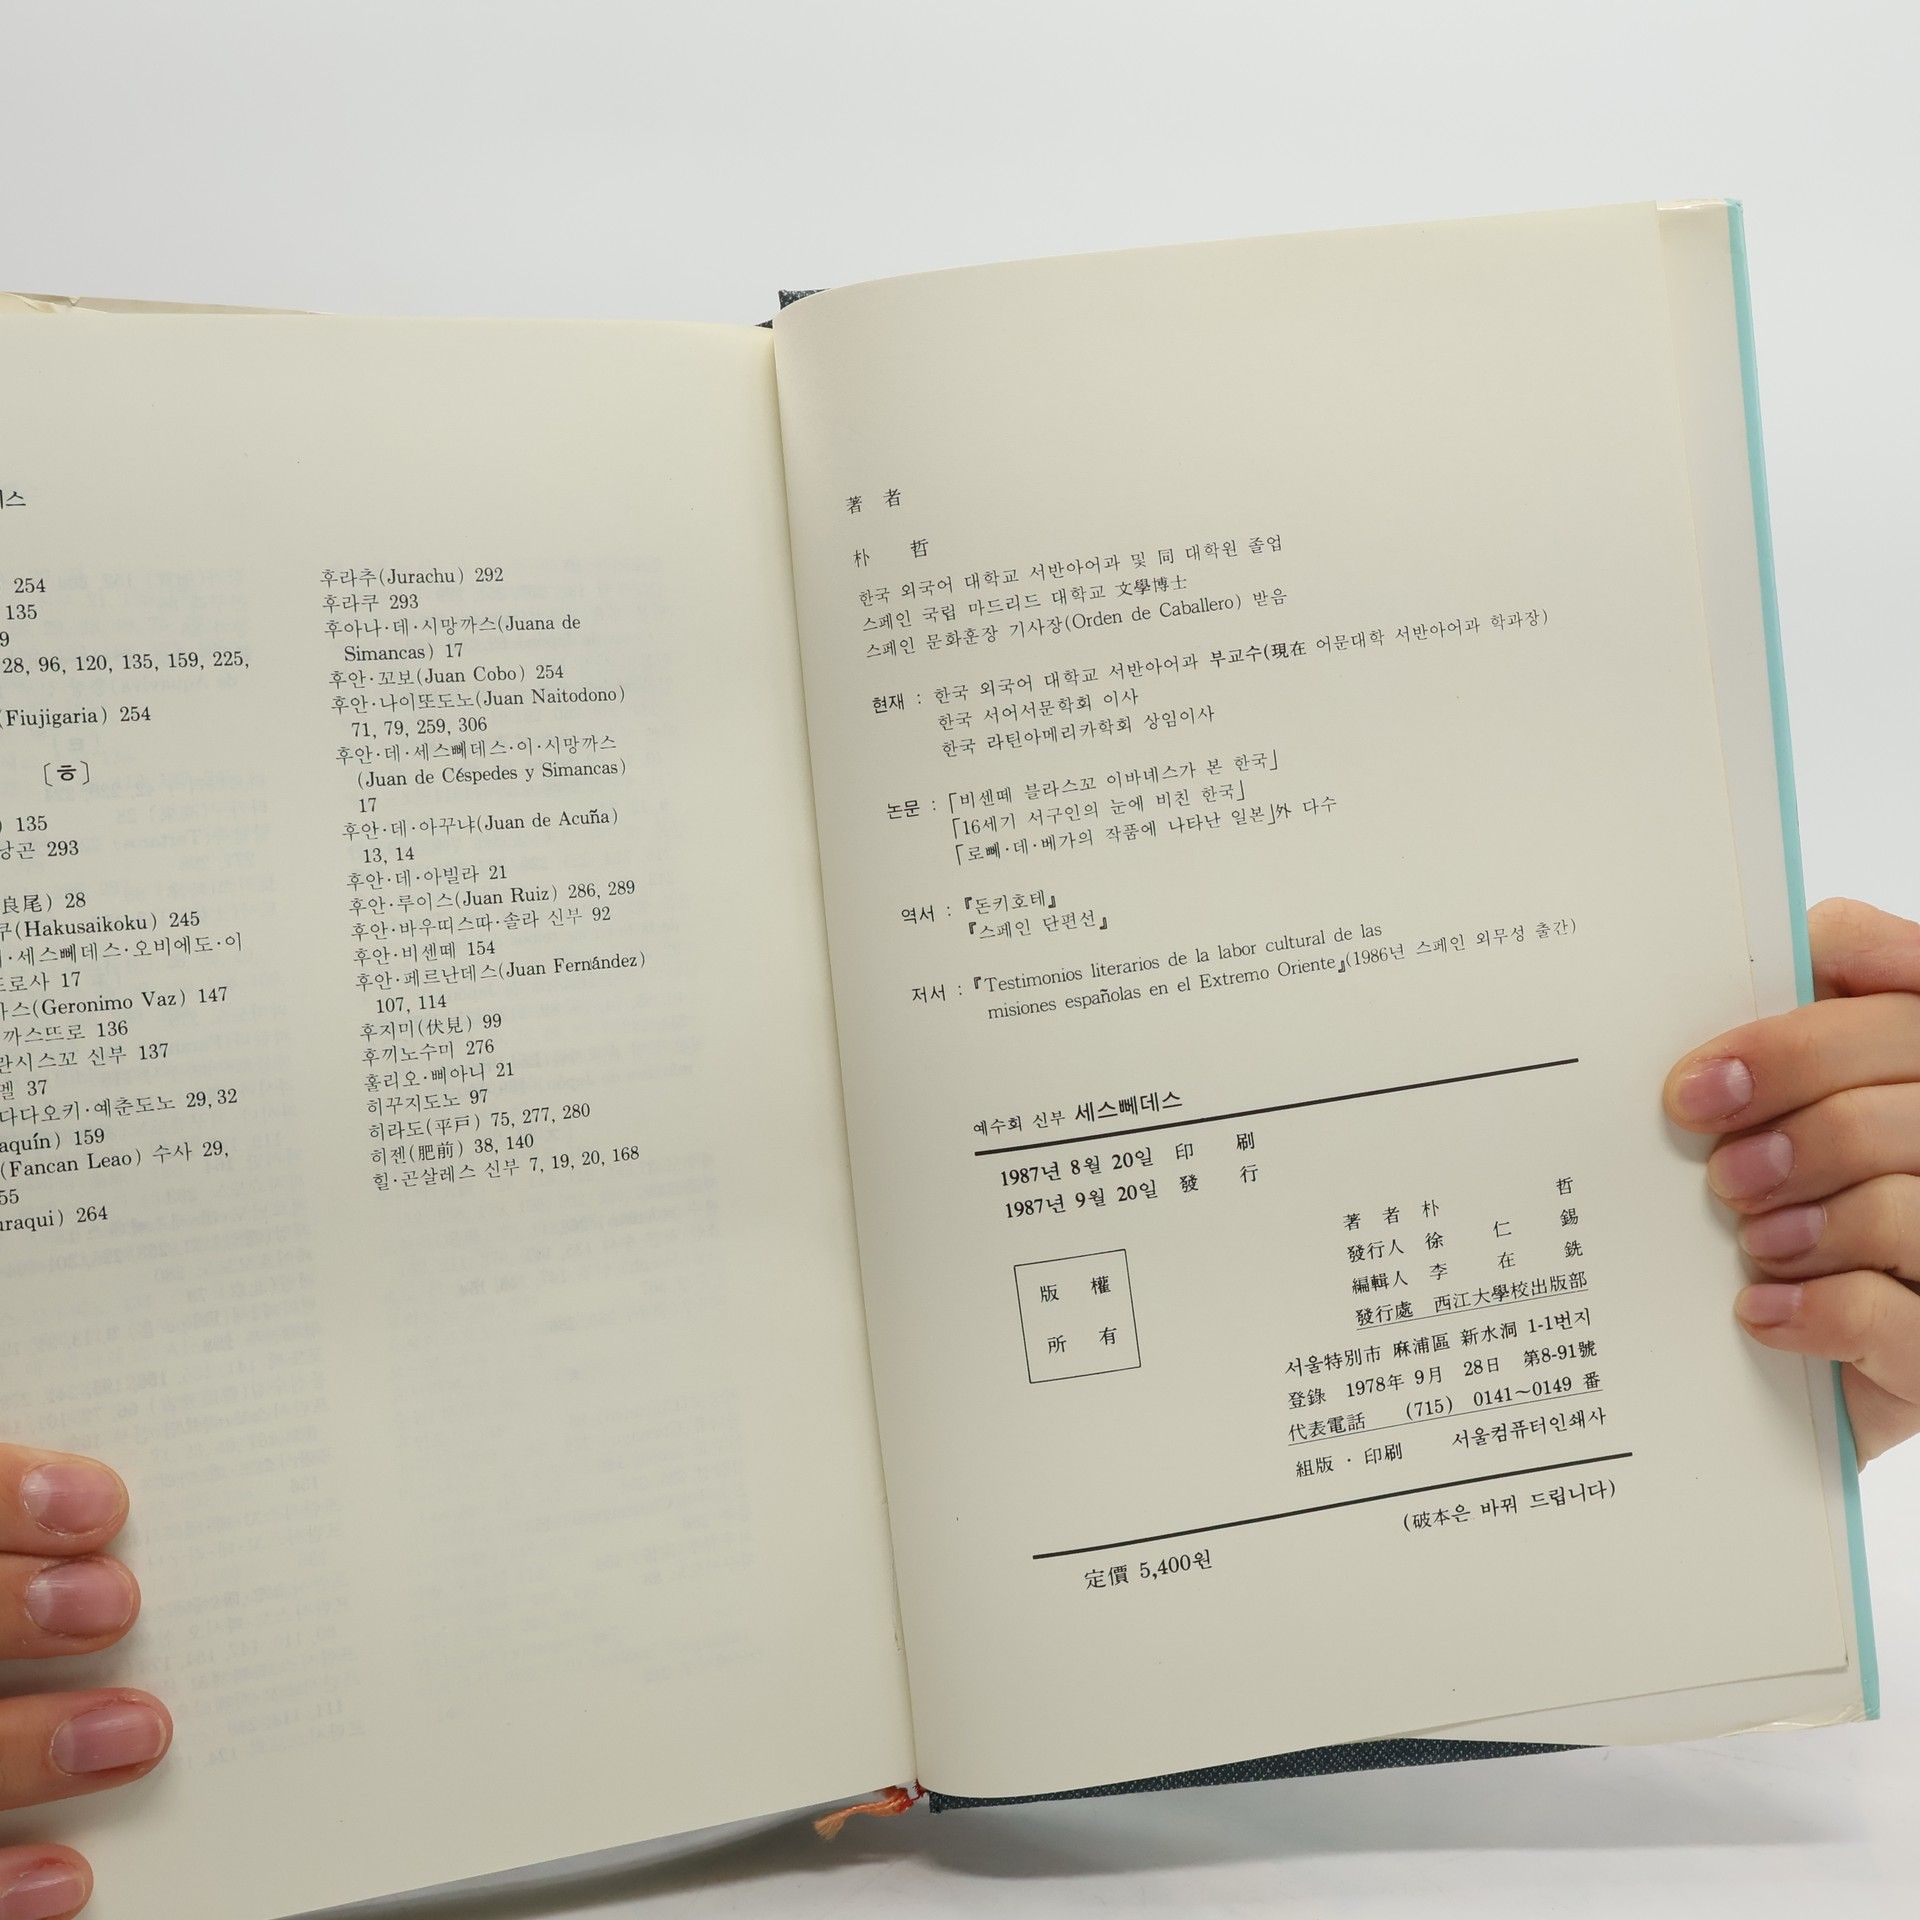 스
254
135
9
28, 96, 120, 135, 159, 225,
(Fiujigaria) 254
〔ㅎ〕
) 135
낭곤 293
良尾) 28
쿠(Hakusaikoku) 245
·세스뻬데스·오비에도·이
드로사 17
가스(Geronimo Vaz) 147
까스뜨로 136
란시스꼬 신부 137
멜 37
다다오키·예춘도노 29, 32
aquín) 159
(Fancan Leao) 수사 29,
55
uraqui) 264
후라추(Jurachu) 292
후라쿠 293
후아나·데·시망까스(Juana de
Simancas) 17
후안·꼬보(Juan Cobo) 254
후안·나이또도노(Juan Naitodono)
71, 79, 259, 306
후안·데·세스뻬데스·이·시망까스
(Juan de Céspedes y Simancas)
17
후안·데·아꾸냐(Juan de Acuña)
13, 14
후안·데·아빌라 21
후안·루이스(Juan Ruiz) 286, 289
후안·바우띠스따·솔라 신부 92
후안·비센떼 154
후안·페르난데스(Juan Fernández)
107, 114
후지미(伏見) 99
후끼노수미 276
훌리오·삐아니 21
히꾸지도노 97
히라도(平戸) 75, 277, 280
히젠(肥前) 38, 140
힐·곤살레스 신부 7, 19, 20, 168
著 者
朴 哲
한국 외국어 대학교 서반아어과 및 同 대학원 졸업
스페인 국립 마드리드 대학교 文學博士
스페인 문화훈장 기사장(Orden de Caballero) 받음
현재 : 한국 외국어 대학교 서반아어과 부교수(現在 어문대학 서반아어과 학과장)
한국 서어서문학회 이사
한국 라틴아메리카학회 상임이사
논문 : 「비센떼 블라스꼬 이바녜스가 본 한국」
「16세기 서구인의 눈에 비친 한국」
「로뻬·데·베가의 작품에 나타난 일본」外 다수
역서 : 『돈키호테』
『스페인 단편선』
저서 : 『Testimonios literarios de la labor cultural de las
misiones españolas en el Extremo Oriente』(1986년 스페인 외무성 출간)
예수회 신부 세스뻬데스
1987년 8월 20일 印 刷
1987년 9월 20일 發 行
版 權
所 有
著 者 朴 哲
發行人 徐 仁 錫
編輯人 李 在 銑
發行處 西江大學校出版部
서울特別市 麻浦區 新水洞 1-1번지
登錄 1978年 9月 28日 第8-91號
代表電話 (715) 0141~0149 番
組版·印刷 서울컴퓨터인쇄사
(破本은 바꿔 드립니다)
定價 5,400원